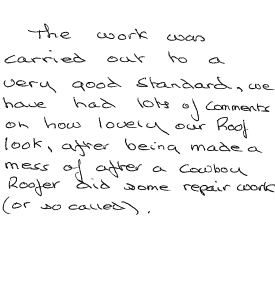 The work was
carried out to a
very good standard, we
have had lots of comments
on how lovely our Roof
look, after being made a
mess of after a Cowboy
Roofer did some repair work
(or so called).